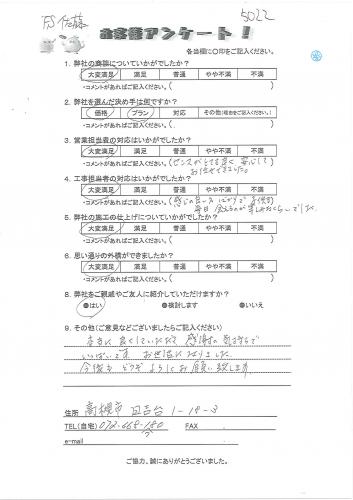 FS 佐藤
5022
お客様アンケート！
各当欄に○印をご記入ください。
1. 弊社の商談についていかがでしたか？
大変満足 満足 普通 やや不満 不満
・コメントがあればご記入ください。（
2. 弊社を選んだ決め手は何ですか？
価格 プラン 対応 その他（理由をご記入ください。）
・コメントがあればご記入ください。（
3. 営業担当者の対応はいかがでしたか？
大変満足 満足 普通 やや不満 不満
・コメントがあればご記入ください。（センスがとても良く 安心して
お任せできました。
4. 工事担当者の対応はいかがでしたか？
大変満足 満足 普通 やや不満 不満
・コメントがあればご記入ください。（
毎日 会えるのが楽しみなくらいでした。
5. 弊社の施工の仕上げについていかがでしたか？
大変満足 満足 普通 やや不満 不満
・コメントがあればご記入ください。（
6. 思い通りの外構ができましたか？
大変満足 満足 普通 やや不満 不満
・コメントがあればご記入ください。（
8. 弊社をご親戚やご友人に紹介していただけますか？
●はい ●検討します ●いいえ
9. その他（ご意見などございましたらご記入ください）
本当に良くしていただいて 感謝の気持ちで
いっぱいです お世話になりました
今後も どうぞ よろしくお願い致します
住所 高槻市 日吉台 1-19-3
TEL（自宅） 072-668- FAX
e-mail
ご協力、誠にありがとうございました。